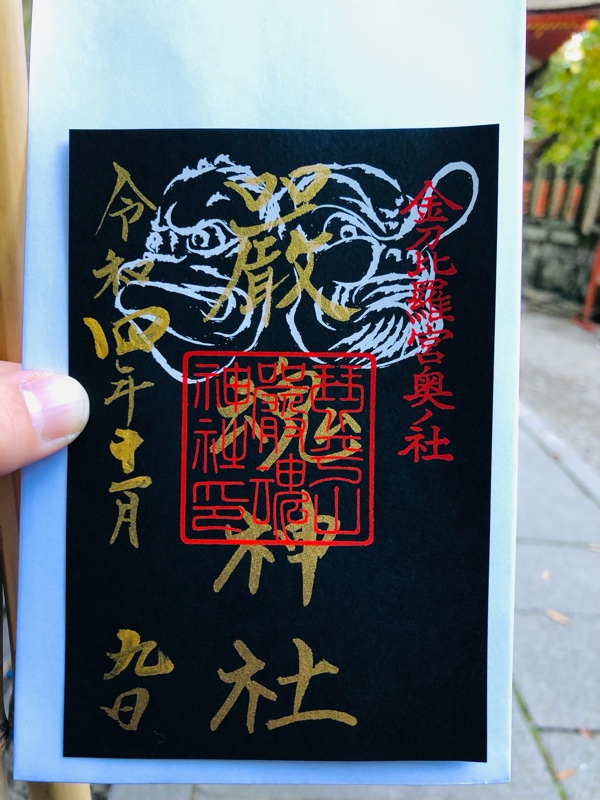 金刀比羅宮奥ノ社
嚴魂神社
琴平山
嚴魂
神社印
令和四年十一月九日